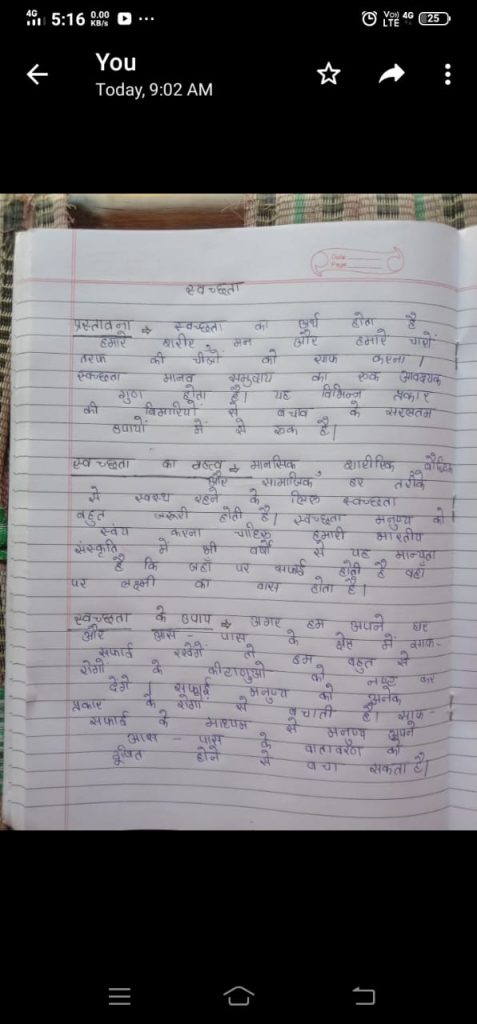 4G 5:16 0.00 KB/s ... Vo) LTE 4G 25
You
Today, 9:02 AM
Date
Page
स्वच्छता
प्रस्तावना ⇒ स्वच्छता का अर्थ होता है
हमारे शरीर, मन और हमारे चारों
तरफ की चीजों को साफ करना।
स्वच्छता मानव समुदाय का एक आवश्यक
गुण होता है। यह विभिन्न प्रकार
की बिमारियों से बचाव के सरलतम
उपायों में से एक है।
स्वच्छता का महत्व ⇒ मानसिक, शारीरिक बौद्धिक
और सामाजिक, हर तरीके
से स्वस्थ रहने के लिए स्वच्छता
बहुत जरूरी होती है। स्वच्छता मनुष्य को
स्वयं करना चाहिए हमारी भारतीय
संस्कृति में भी वर्षों से यह मान्यता
है कि जहाँ पर सफाई होती है वहाँ
पर लक्ष्मी का वास होता है।
स्वच्छता के उपाय ⇒ अगर हम अपने घर
और आस - पास के क्षेत्र में साफ-
सफाई रखेगें तो हम बहुत से
रोगों के कीटाणुओ को नष्ट कर
देगें। सफाई मनुष्य को अनेक
प्रकार के रोगों से बचाती है। साफ-
सफाई के माध्यम से मनुष्य अपने
आस - पास के वातावरण को
दुषित होने से बचा सकता है।